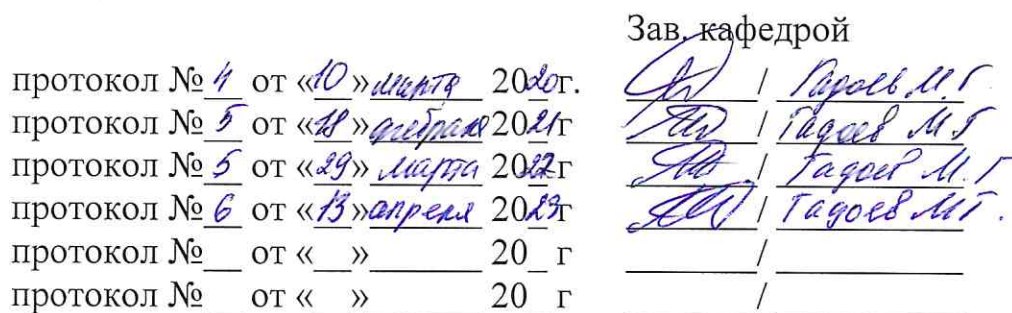 Зав. кафедрой
протокол № 4 от «10» марта 2020г. / Гадоев М.Г
протокол № 5 от «18» февраля 2021г / Гадоев М.Г
протокол № 5 от «29» марта 2022г / Гадоев М.Г
протокол № 6 от «13» апреля 2023г / Гадоев М.Г.
протокол №__ от «__»______ 20_ г ______/________
протокол № от « » 20 г /